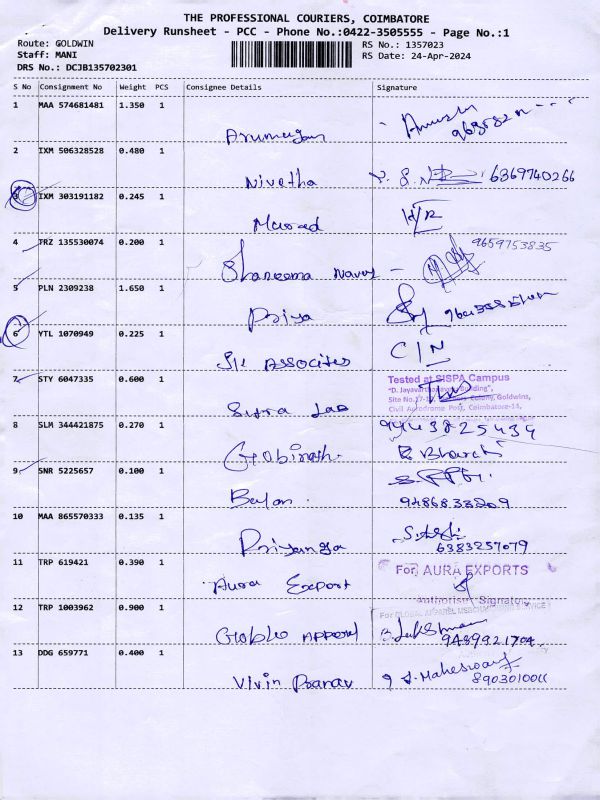 THE PROFESSIONAL COURIERS, COIMBATORE
Delivery Runsheet - PCC - Phone No.:0422-3505555 - Page No.:1
Route: GOLDWIN
Staff: MANI
DRS No.: DCJB135702301
RS No.: 1357023
RS Date: 24-Apr-2024
S No Consignment No Weight PCS Consignee Details Signature
1 MAA 574681481 1.350 1
Arumugam
2 IXM 506328528 0.480 1
Nivetha 6369740266
3 IXM 303191182 0.245 1
Murad H/R
4 TRZ 135530074 0.200 1
Shaneema Navas 9659753835
5 PLN 2309238 1.650 1
Priya
6 YTL 1070949 0.225 1
Assocites C/N
7 STY 6047335 0.600 1
Tested at SISPA Campus
Building",
Site No.17-19, Colony, Goldwins,
Civil Aerodrome Post, Coimbatore-14,
Sitra Lab
8 SLM 344421875 0.270 1
9443825439
Gobinath. R Bharath
9 SNR 5225657 0.100 1
Balan. 9486833209
10 MAA 865570333 0.135 1
Priyanga 6383257079
11 TRP 619421 0.390 1
For AURA EXPORTS
Aura Export
Authorise Signatory
12 TRP 1003962 0.900 1
For GLOBAL APPAREL
Globle Apperal B. Lakshman
9489921704
13 DDG 659771 0.400 1
Vivin Pranav J. Maheswari
8903010011